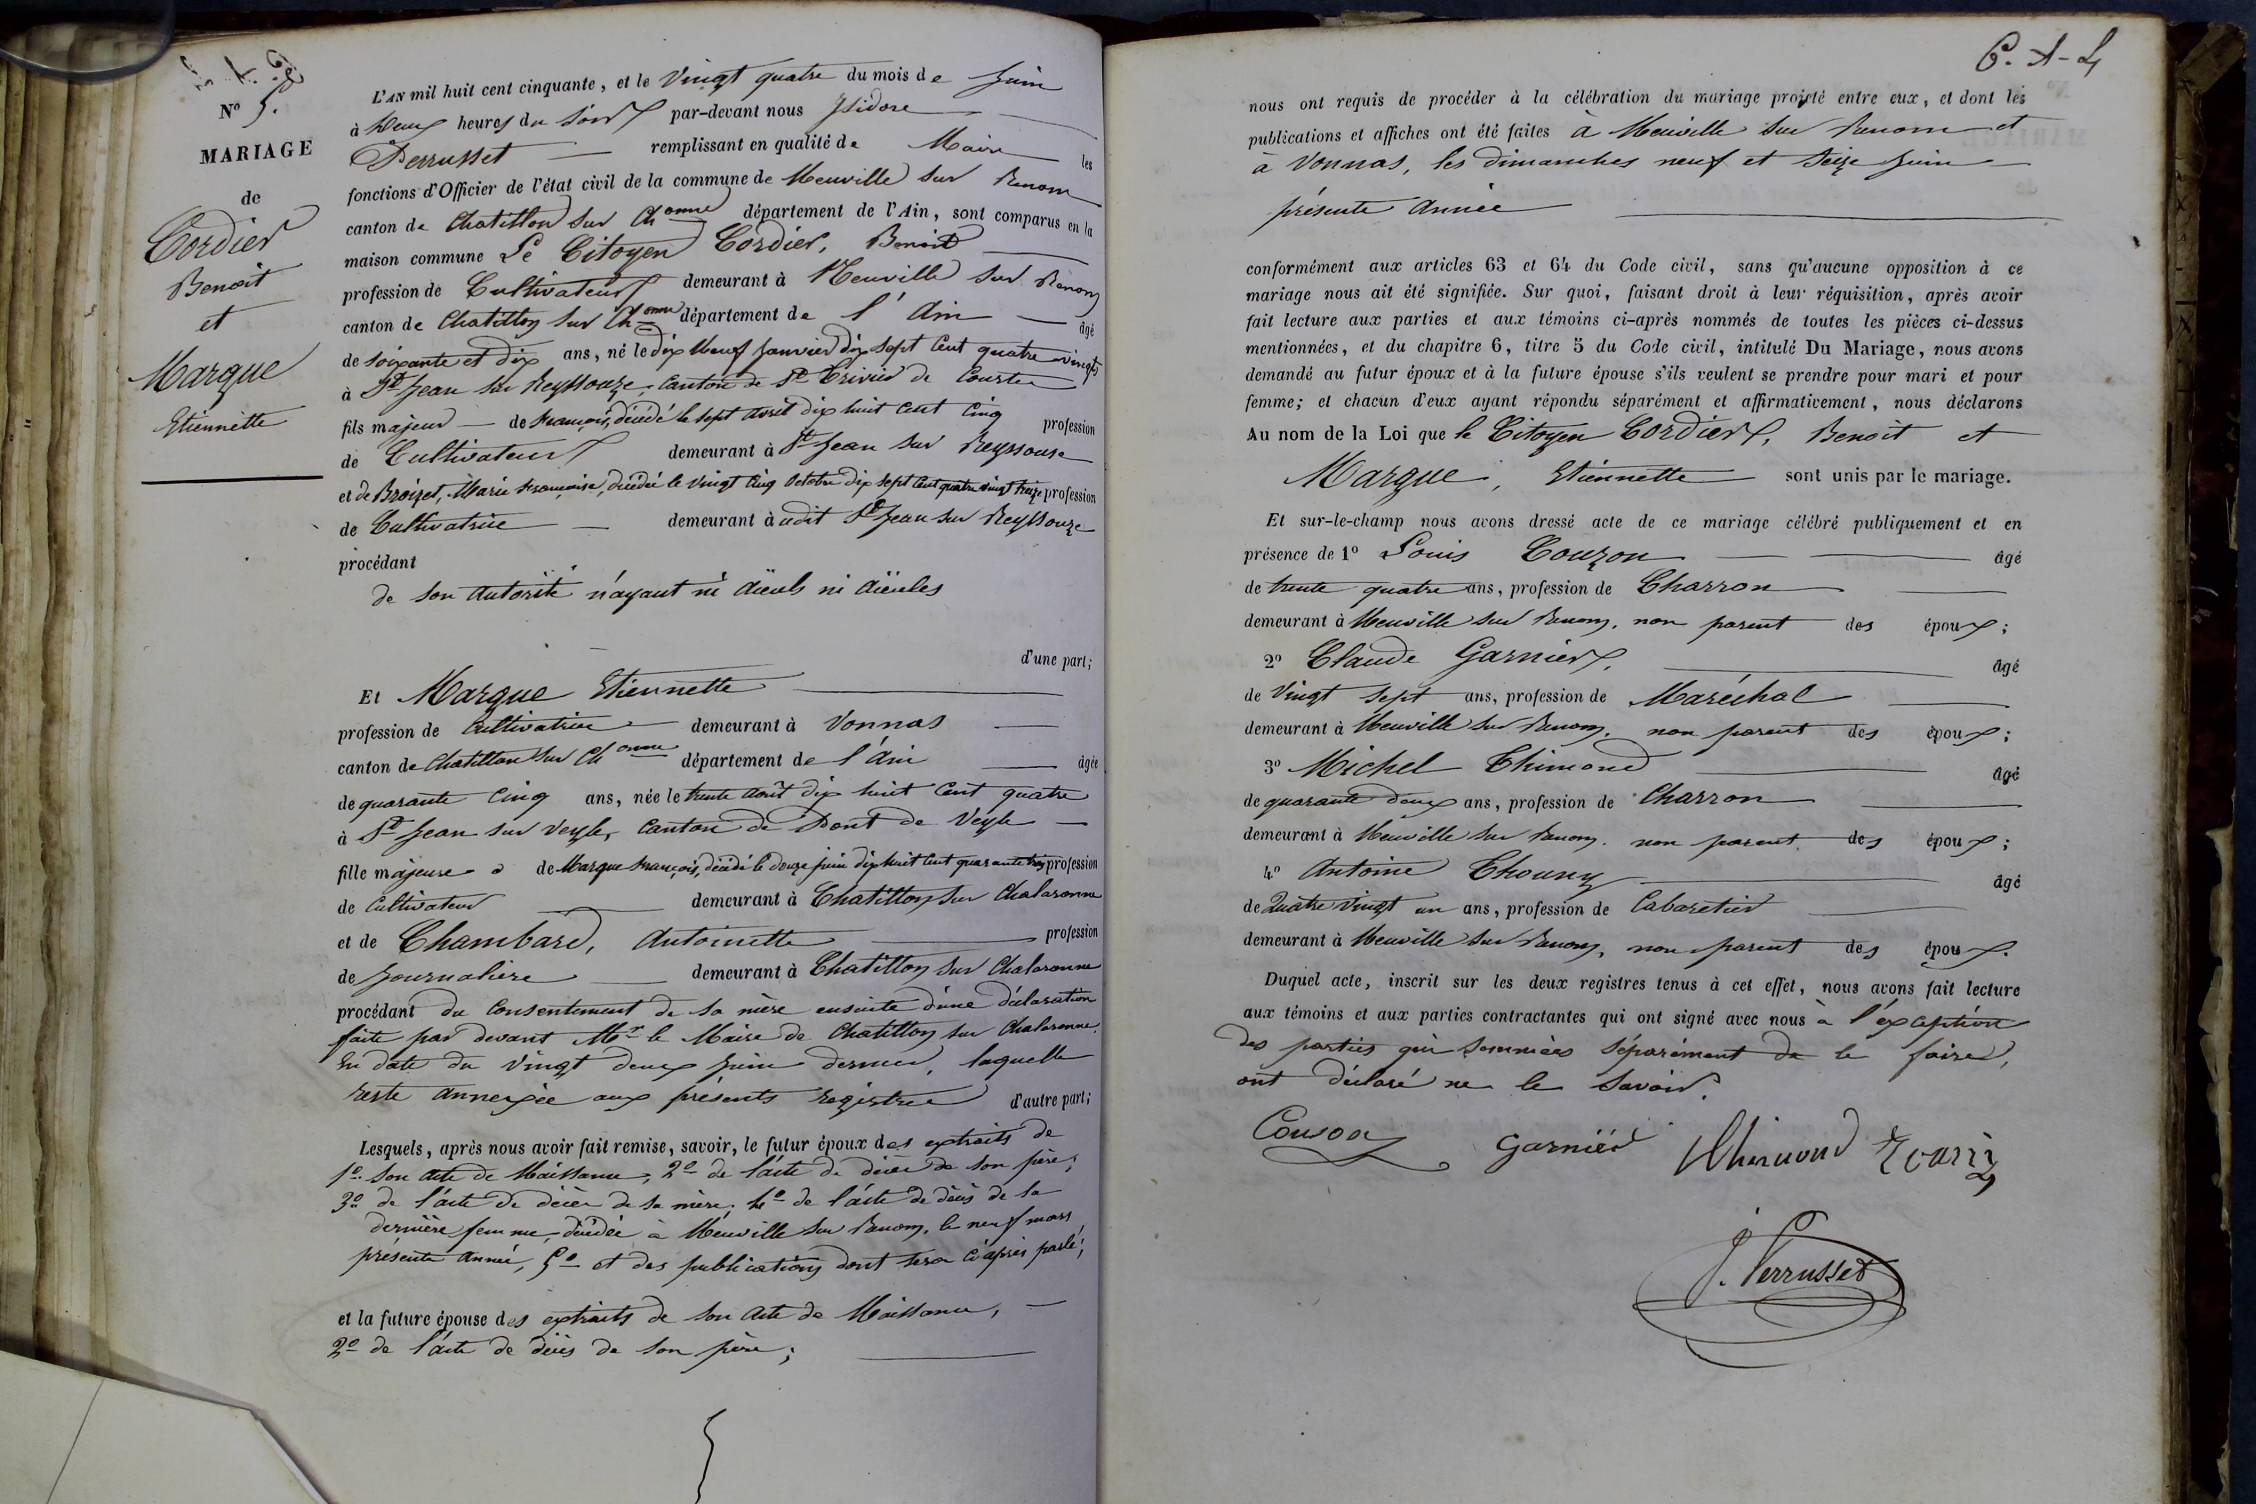 N° 5.
MARIAGE
de
Cordier
Benoit
et
Marque
Etiennette
L'AN mil huit cent cinquante, et le vingt quatre du mois de Juin
à Deux heures du soir par-devant nous Isidore
Perrusset remplissant en qualité de Maire les
fonctions d'Officier de l'état civil de la commune de Neuville sur Renom
canton de Chatillon sur Chonne département de l'Ain, sont comparus en la
maison commune Le Citoyen Cordier, Benoit
profession de Cultivateur demeurant à Neuville sur Renom
canton de Chatillon sur Chonne département de l'Ain âgé
de soixante et dix ans, né le dix Neuf Janvier dix sept Cent quatre vingts
à St Jean sur Reyssouze, Canton de St Trivier de Courtes
fils majeur de François, décédé le sept avril dix huit Cent Cinq profession
de Cultivateur demeurant à St Jean sur Reyssouse
et de Broizet, Marie Françoise, décédée le vingt Cinq Octobre dix sept Cent quatre vingt treize profession
de Cultivatrice demeurant à udit St Jean sur Reyssouze
procédant
de son autorité n'ayant ni aïeuls ni aïeules
d'une part;
Et Marque Etiennette
profession de Cultivatrice demeurant à Vonnas
canton de Chatillon sur Chonne département de l'Ain âgée
de quarante Cinq ans, née le trente août dix huit Cent quatre
à St Jean sur Veyle, Canton de Pont de Veyle
fille majeure de Marque François, décédé le douze Juin dix huit Cent quarante profession
de Cultivateur demeurant à Chatillon sur Chalaronne
et de Chambard, Antoinette profession
de Journalière demeurant à Chatillon sur Chalaronne
procédant du Consentement de sa mère ensuite d'une déclaration
faite par devant Mr le Maire de Chatillon sur Chalaronne
En date du vingt deux Juin dernier, laquelle
reste annexée aux présents registres d'autre part;
Lesquels, après nous avoir fait remise, savoir, le futur époux des extraits de
1° son acte de Naissance, 2° de l'acte de décès de son père;
3° de l'acte de décès de sa mère; 4° de l'acte de décès de sa
dernière femme, décédée à Neuville sur Renom, le neuf mars
présente année, 5° et des publications dont sera ci après parlé;
et la future épouse des extraits de son acte de Naissance,
2° de l'acte de décès de son père;
nous ont requis de procéder à la célébration du mariage projeté entre eux, et dont les
publications et affiches ont été faites à Neuville sur Renom et
à Vonnas, les dimanches neuf et seize Juin
présente année
conformément aux articles 63 et 64 du Code civil, sans qu'aucune opposition à ce
mariage nous ait été signifiée. Sur quoi, faisant droit à leur réquisition, après avoir
fait lecture aux parties et aux témoins ci-après nommés de toutes les pièces ci-dessus
mentionnées, et du chapitre 6, titre 5 du Code civil, intitulé Du Mariage, nous avons
demandé au futur époux et à la future épouse s'ils veulent se prendre pour mari et pour
femme; et chacun d'eux ayant répondu séparément et affirmativement, nous déclarons
Au nom de la Loi que le Citoyen Cordier, Benoit et
Marque, Etiennette sont unis par le mariage.
Et sur-le-champ nous avons dressé acte de ce mariage célébré publiquement et en
présence de 1° Louis Couzon âgé
de trente quatre ans, profession de Charron
demeurant à Neuville sur Renom, non parent des époux;
2° Claude Garnier, âgé
de Vingt sept ans, profession de Maréchal
demeurant à Neuville sur Renom, non parent des époux;
3° Michel Thimond âgé
de quarante deux ans, profession de Charron
demeurant à Neuville sur Renom, non parent des époux;
4° Antoine Thouny âgé
de Quatre vingt un ans, profession de Cabaretier
demeurant à Neuville sur Renom, non parent des époux.
Duquel acte, inscrit sur les deux registres tenus à cet effet, nous avons fait lecture
aux témoins et aux parties contractantes qui ont signé avec nous à l'exception
des parties qui sommées séparément de le faire,
ont déclaré ne le savoir.
Couson Garnier Thimond
J. Perrusset